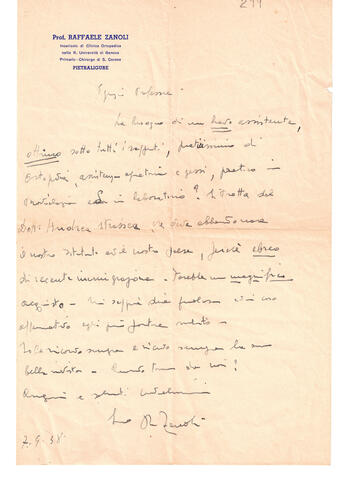 299
Prof. RAFFAELE ZANOLI
Incaricato di Clinica Ortopedica
nella R. Università di Genova
Primario-Chirurgo di S. Corona
PIETRALIGURE
Egregio Professore
Ha bisogno di un bravo assistente,
ottimo sotto tutti i rapporti, praticissimo di
ortopedia, assistenza operatoria e gessi, pratico in
e in laboratorio? Si tratta del
Dott. Andrea che deve abbandonare
il nostro Istituto ed il nostro paese, perchè ebreo
di recente immigrazione. Farebbe un magnifico
acquisto - Mi sappia dire qualcosa ed in caso
affermativo egli può partire subito -
La ricordo sempre e ricordo sempre la sua
bella - Quando torna da noi?
Auguri e saluti
Suo R. Zanoli
7.9.38.